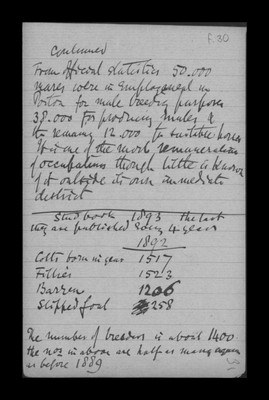 f. 30
Continued
From Official Statistics 50.000
mares were in employment in
Poitou for mule breeding purposes
38.000 for producing mules &
the remaing 12.000 to suitable horses
It is one of the most remunerative
of occupations though little is known
of it outside its own immediate
district
Stud book 1893 the last
they are published every 4 years
1892
Colts born in year 1517
Fillies 1523
Barren 1206
Slipped foal 258
The number of breeders is about 1400
the nos in above are half as many again
as before 1889